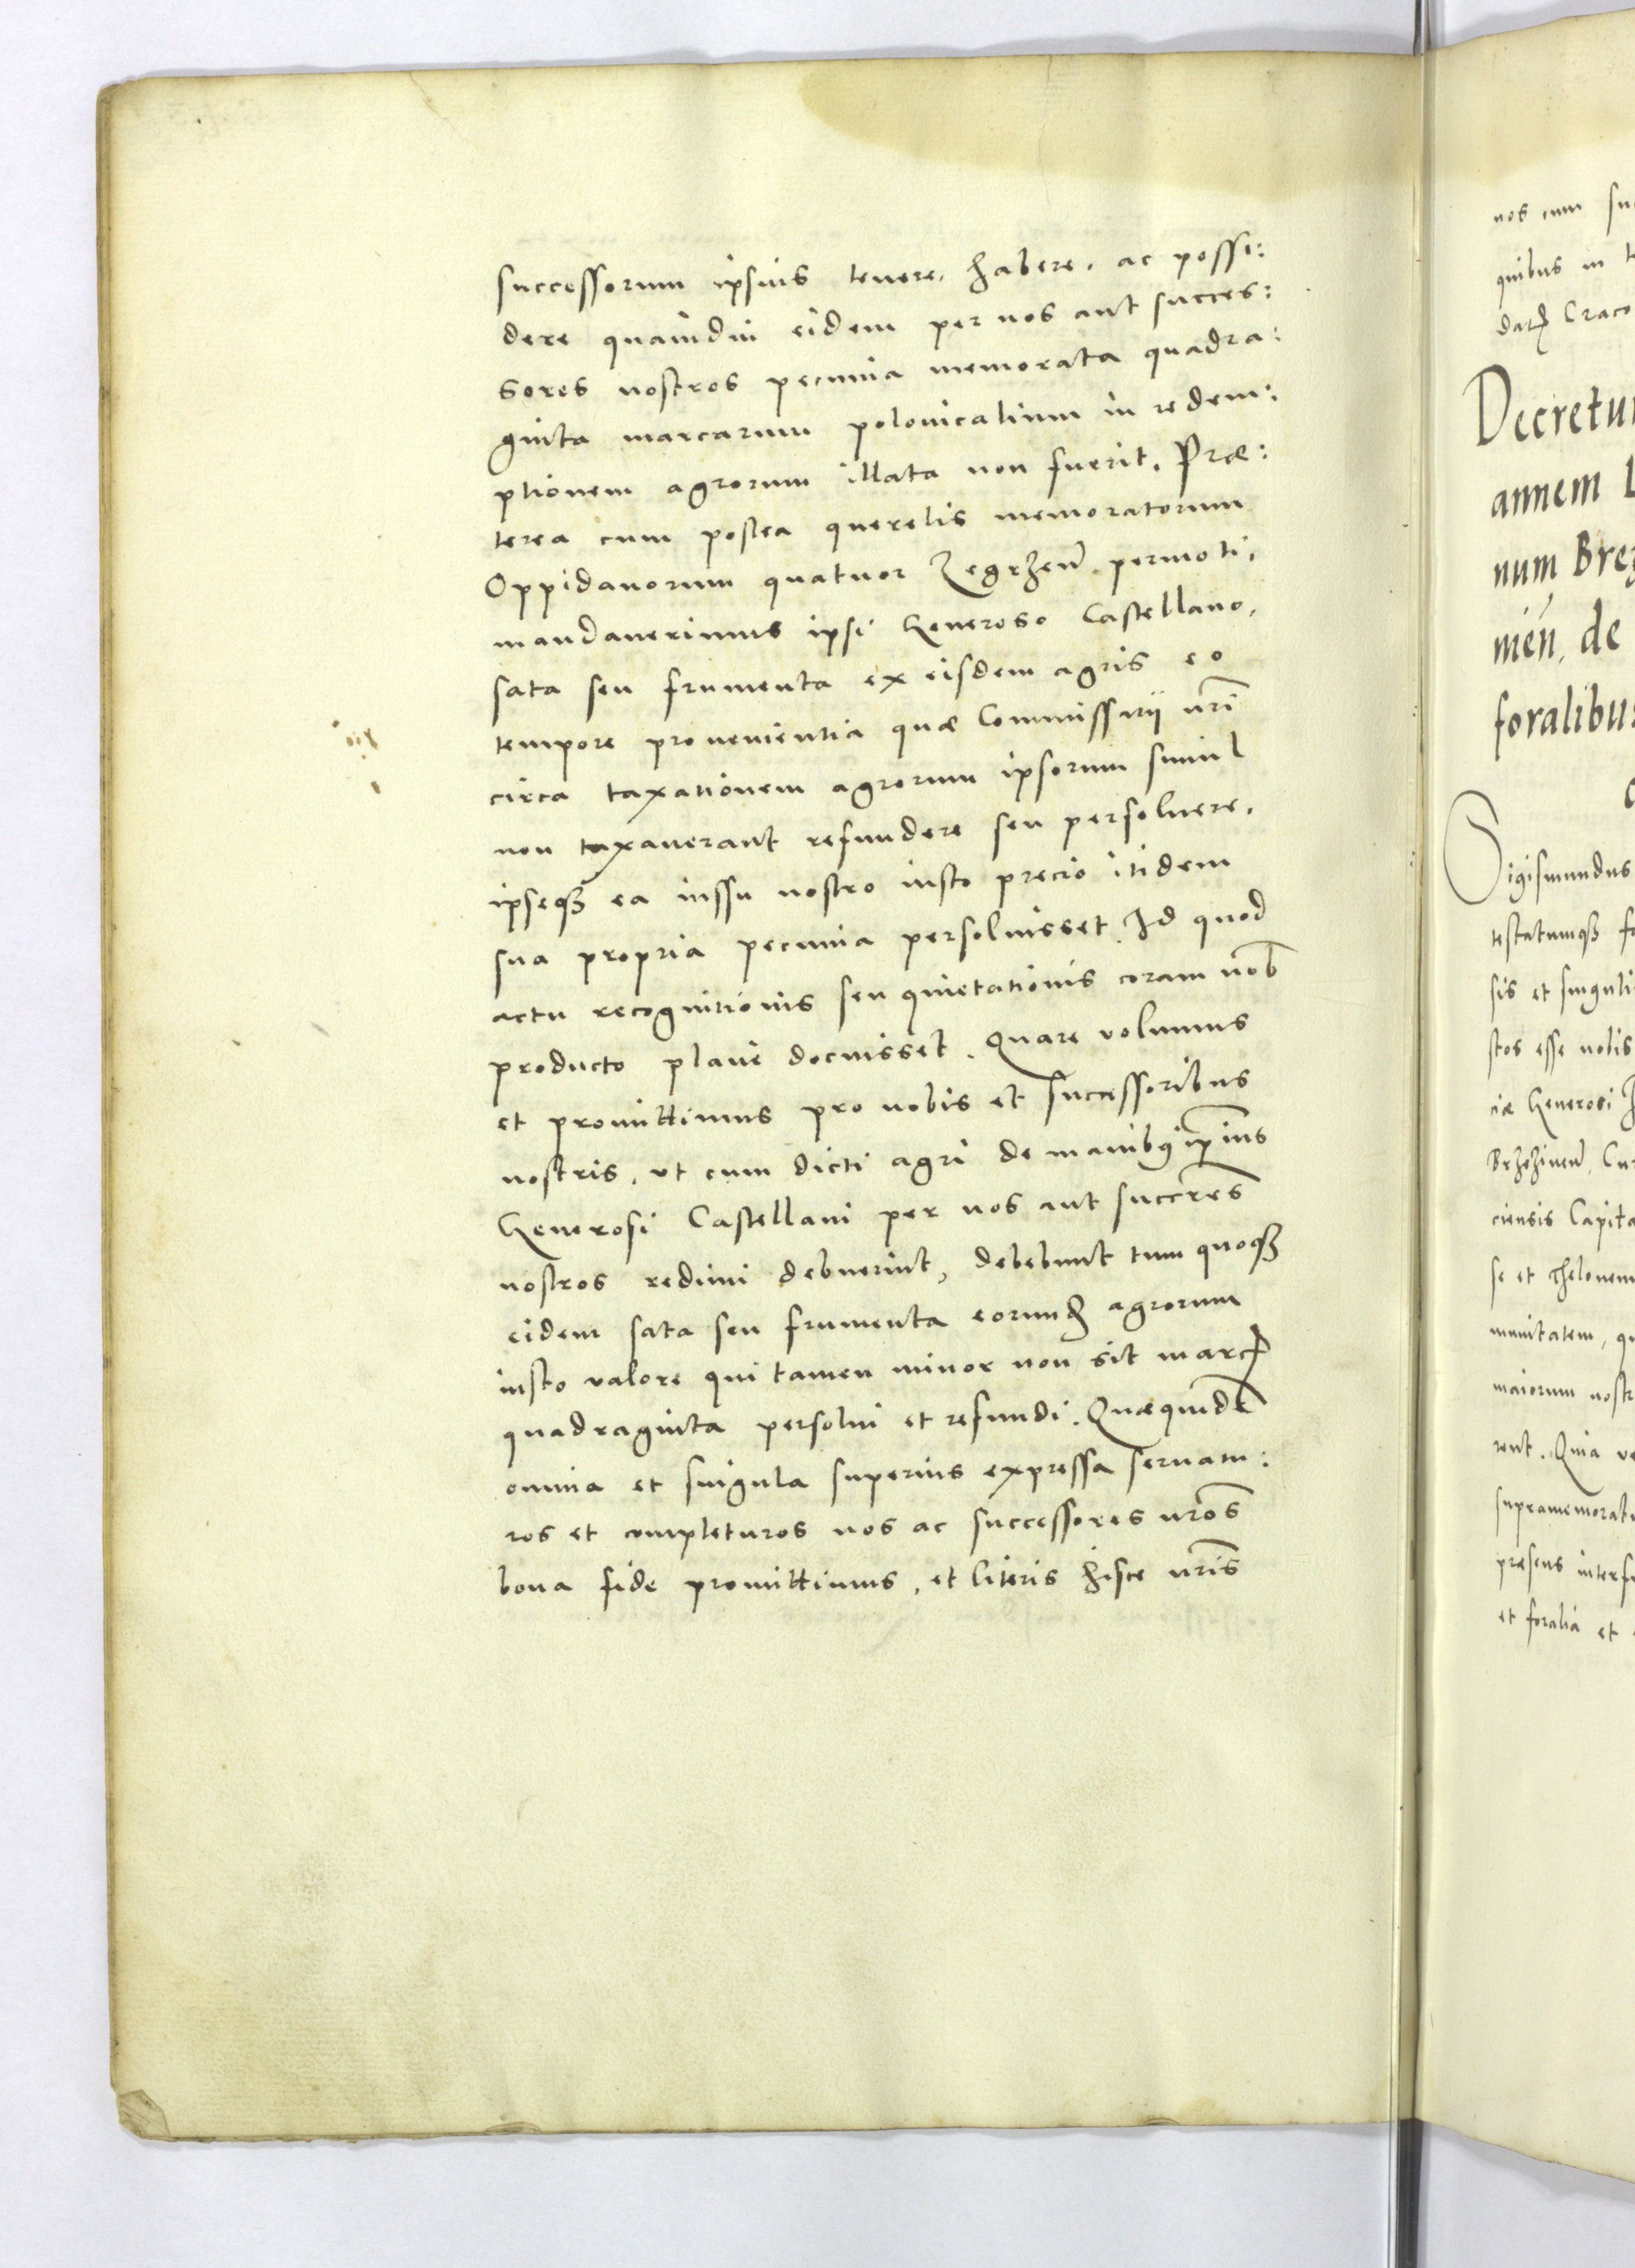 successorum ipsius tenere, habere, ac possi:
dere quamdiu eidem per nos aut succes:
sores nostros pecunia memorata quadra:
ginta marcarum polonicalium in redem:
ptionem agrorum illata non fuerit. Præ:
terea cum postea querelis memoratorum
Oppidanorum quatuor Zegrzen̄. permoti,
mandauerimus ipsi Generoso Castellano,
sata seu frumenta ex eisdem agris eo
tempore prouenientia quæ Commissarij nr̄i
circa taxationem agrorum ipsorum simul
non taxauerant refundere seu persoluere,
ipseqꝫ ea iussu nostro iusto precio itidem
sua propria pecunia persoluisset. Id quod
actu recognitionis seu quietationis coram nob̄
producto plane docuisset. Quare volumus
et promittimus pro nobis et successoribus
nostris, vt cum dicti agri de manibꝰ ip̄ius
Generosi Castellani per nos aut succres̄
nostros redimi debuerint, debebunt tum quoqꝫ
eidem sata seu frumenta eorundꝭ agrorum
iusto valore qui tamen minor non sit marcꝭ
quadraginta persolui et refundi. Quæquidē
omnia et singula superius expressa seruatu:
ros et completuros nos ac successores nr̄os
bona fide promittimus, et literis hisce nr̄is
nos cum
quibus in
datꝭ Craco
Decretu
annem
num Brez
men̄, de
foralibus
Sigismundus
testatumqꝫ
sis et singuli
stos esse nolis
ciæ Generosi
Brzezinen̄,
ciensis Capita
se et Thelonem
munitatem,
maiorum nostr
rent. Quia
supramemorat
presens interfu
et foralia et